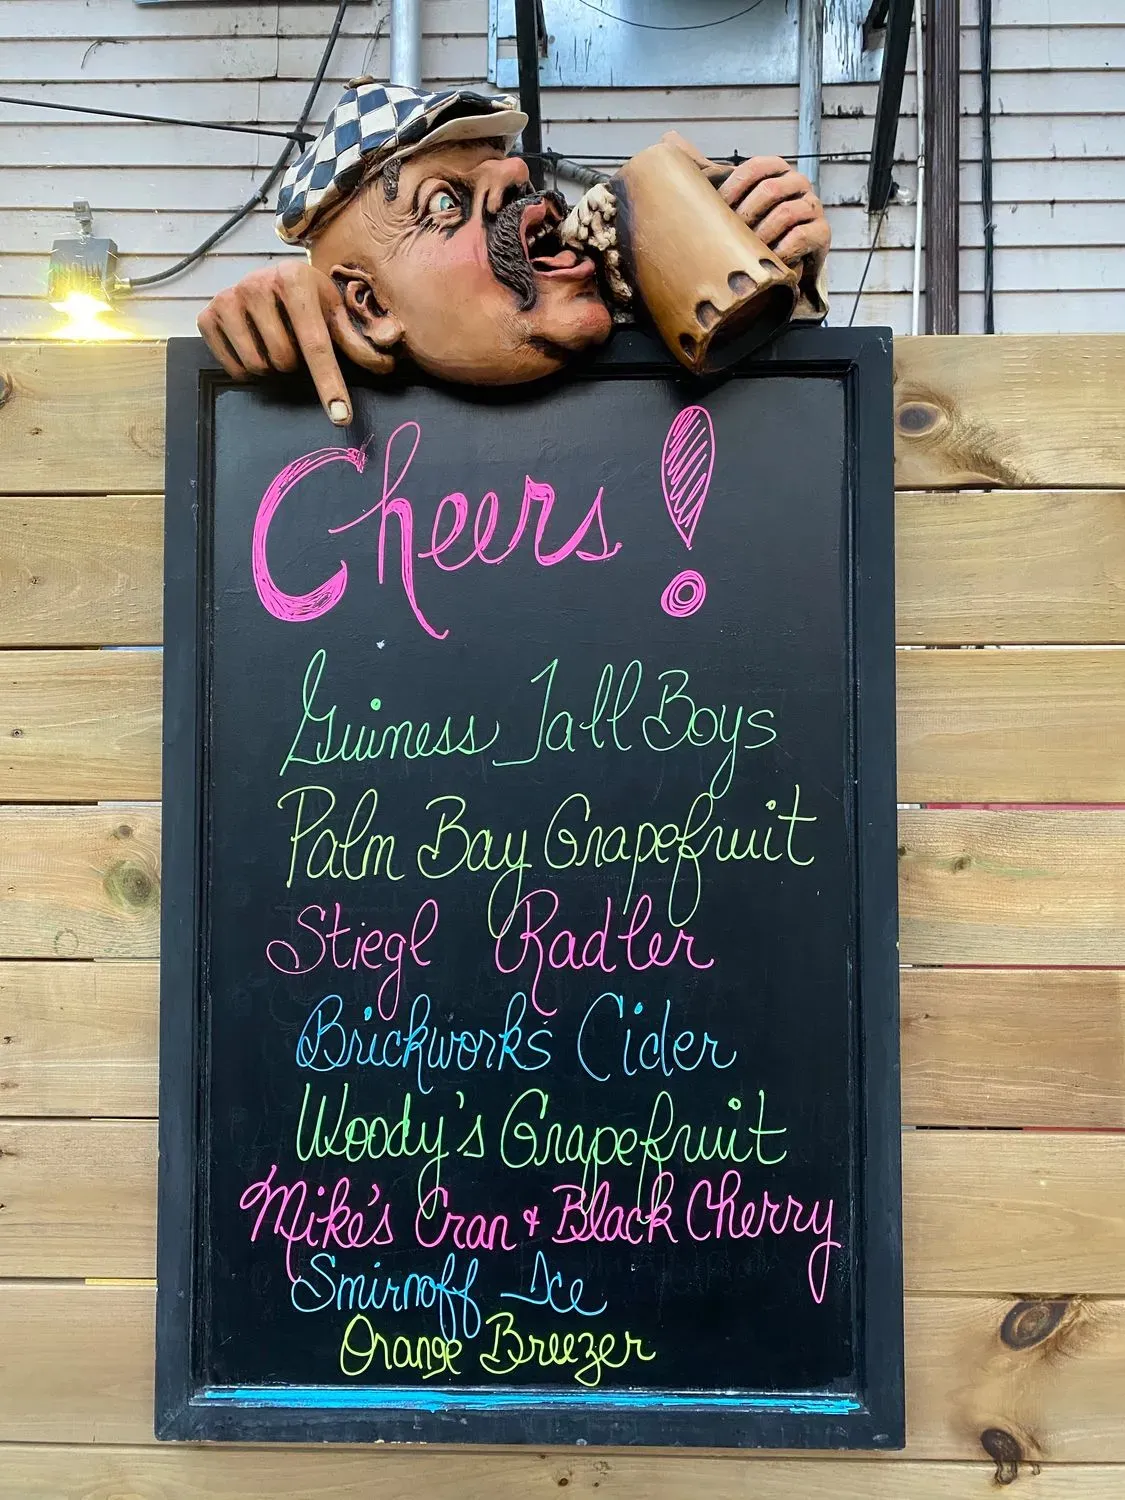 Cheers!
Guiness Tall Boys
Palm Bay Grapefruit
Stiegl Radler
Brickworks Cider
Woody's Grapefruit
Mike's Cran + Black Cherry
Smirnoff Ice
Orange Breezer